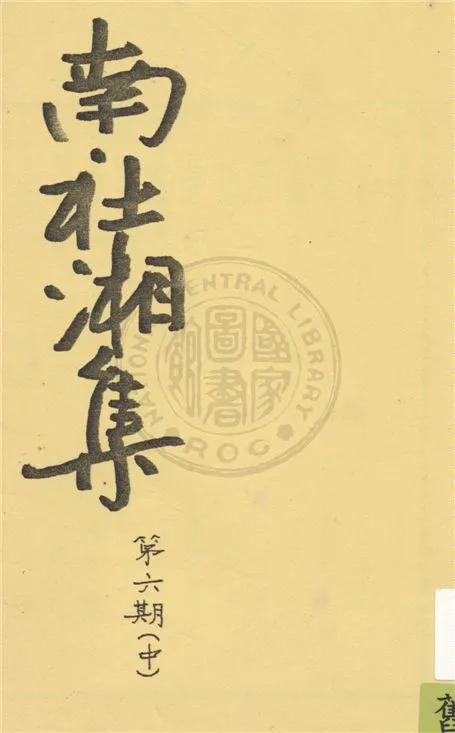 南社湘集
第六期(中)
NATIONAL CENTRAL LIBRARY
國家圖書館
ROC
舊